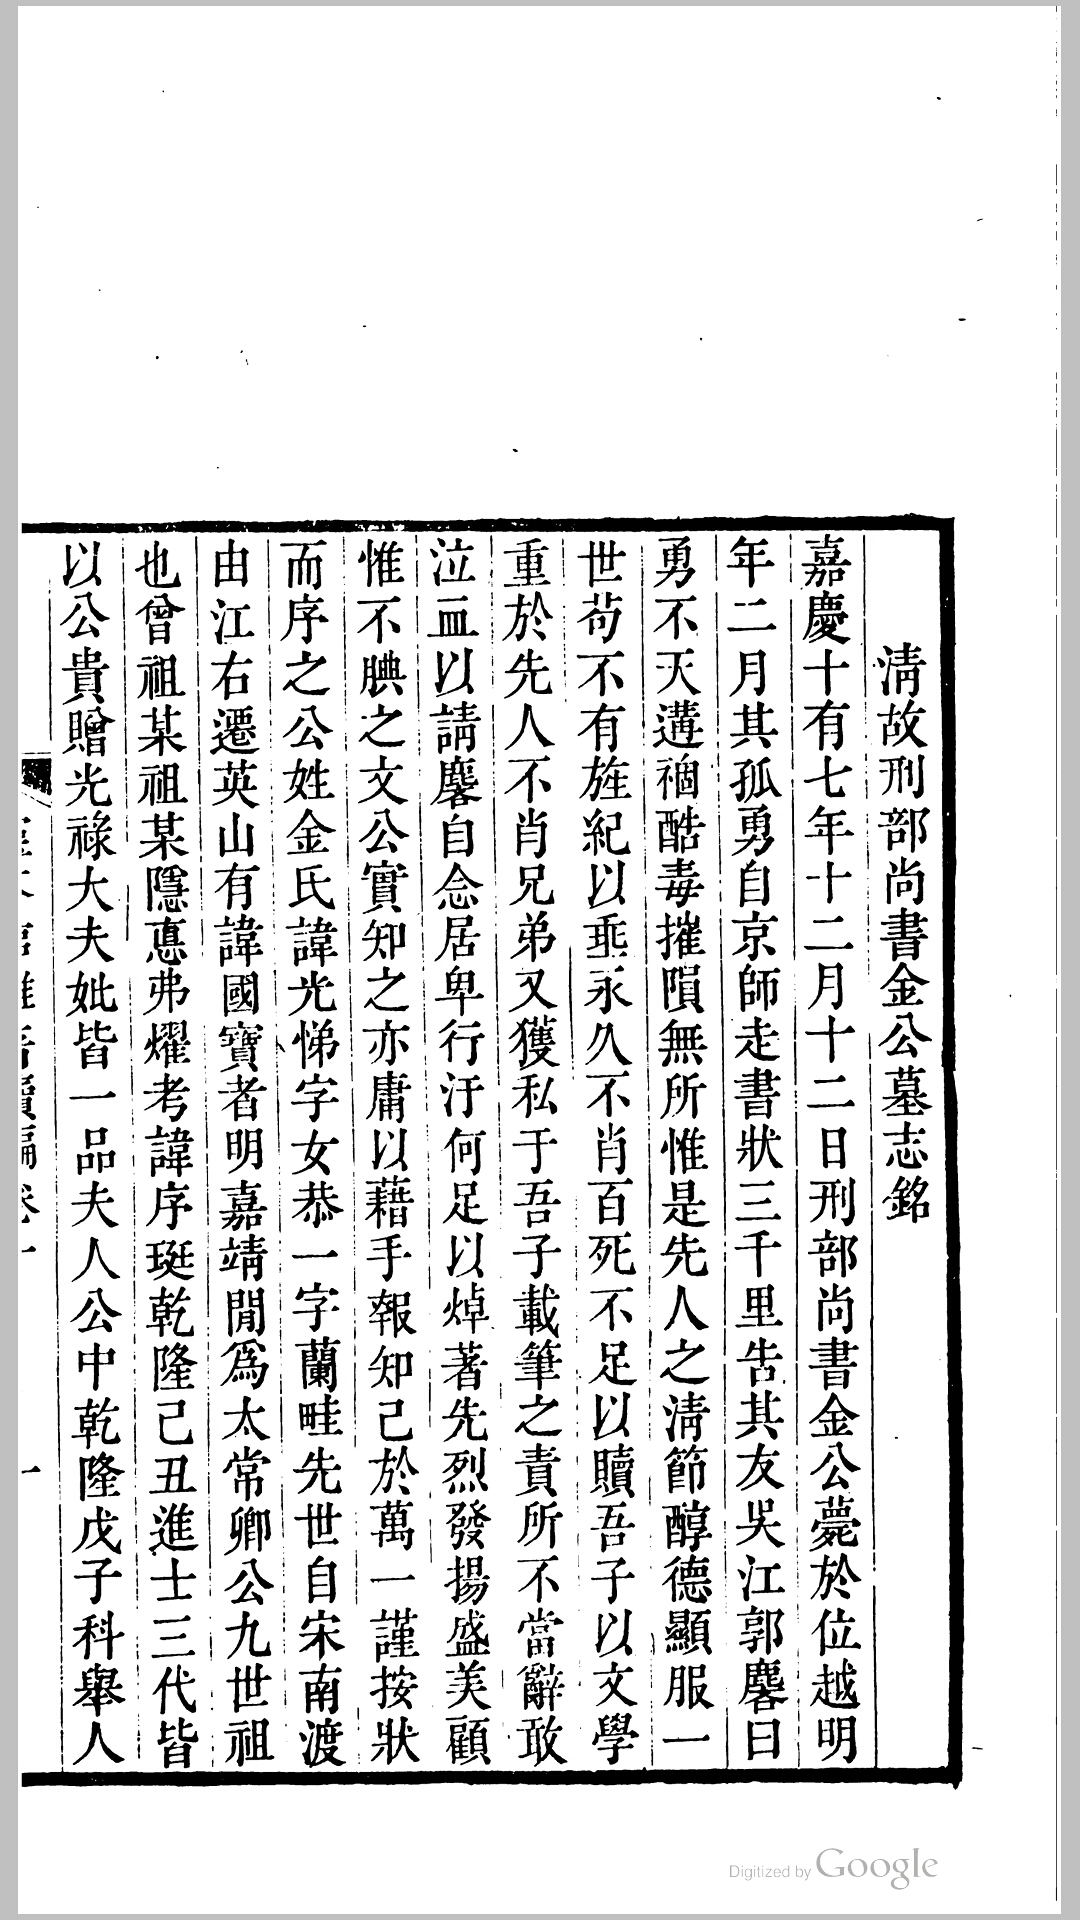 淸故刑部尚書金公墓志銘
嘉慶十有七年十二月十二日刑部尚書金公薨於位越明
年二月其孤勇自京師走書狀三千里吿其友吳江郭麐曰
勇不天遘禍酷毒摧隕無所惟是先人之淸節醇德顯服一
世苟不有旌紀以垂永久不肖百死不足以贖吾子以文學
重於先人不肖兄弟又獲私于吾子載筆之責所不當辭敢
泣血以請麐自念居卑行汙何足以焯著先烈發揚盛美顧
惟不腆之文公實知之亦庸以藉手報知己於萬一謹按狀
而序之公姓金氏諱光悌字女恭一字蘭畦先世自宋南渡
由江右遷英山有諱國寶者明嘉靖閒爲太常卿公九世祖
也曾祖某祖某隱悳弗耀考諱序珽乾隆己丑進士三代皆
以公貴贈光祿大夫妣皆一品夫人公中乾隆戊子科舉人
一
Digitized by Google